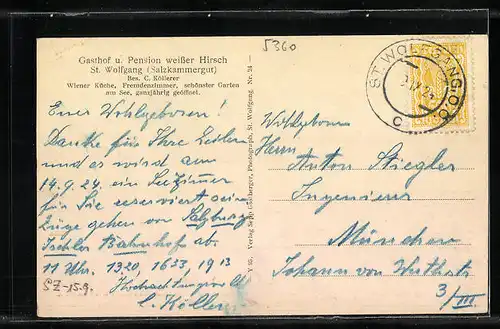 5360
Gasthof u. Pension weißer Hirsch
St. Wolfgang (Salzkammergut)
Bes. C. Köllerer
Wiener Küche, Fremdenzimmer, schönster Garten
am See, ganzjährig geöffnet.
Euer Wohlgeboren!
Danke für Ihre Zeilen
und es wird am
14.9.24 ein Seezimmer
für Sie reserviert sein
Züge gehen vom Salzburg
Ischler Bahnhof ab.
11 Uhr. 1320, 1623, 1913
Hochachtungsvoll
C. Köllerer
SZ-15.9.
Verlag Sepp Photograph, St. Wolfgang Nr. 34
ST. WOLFGANG
C
Wohlgeboren
Herrn
Anton Stiegler
Ingenieur
München
Johann von
3/III